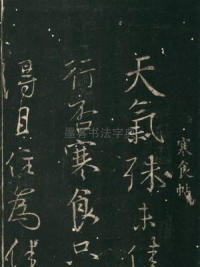 寒食帖
天氣殊未佳
行否寒食只
得且住為佳
墨客书法字典